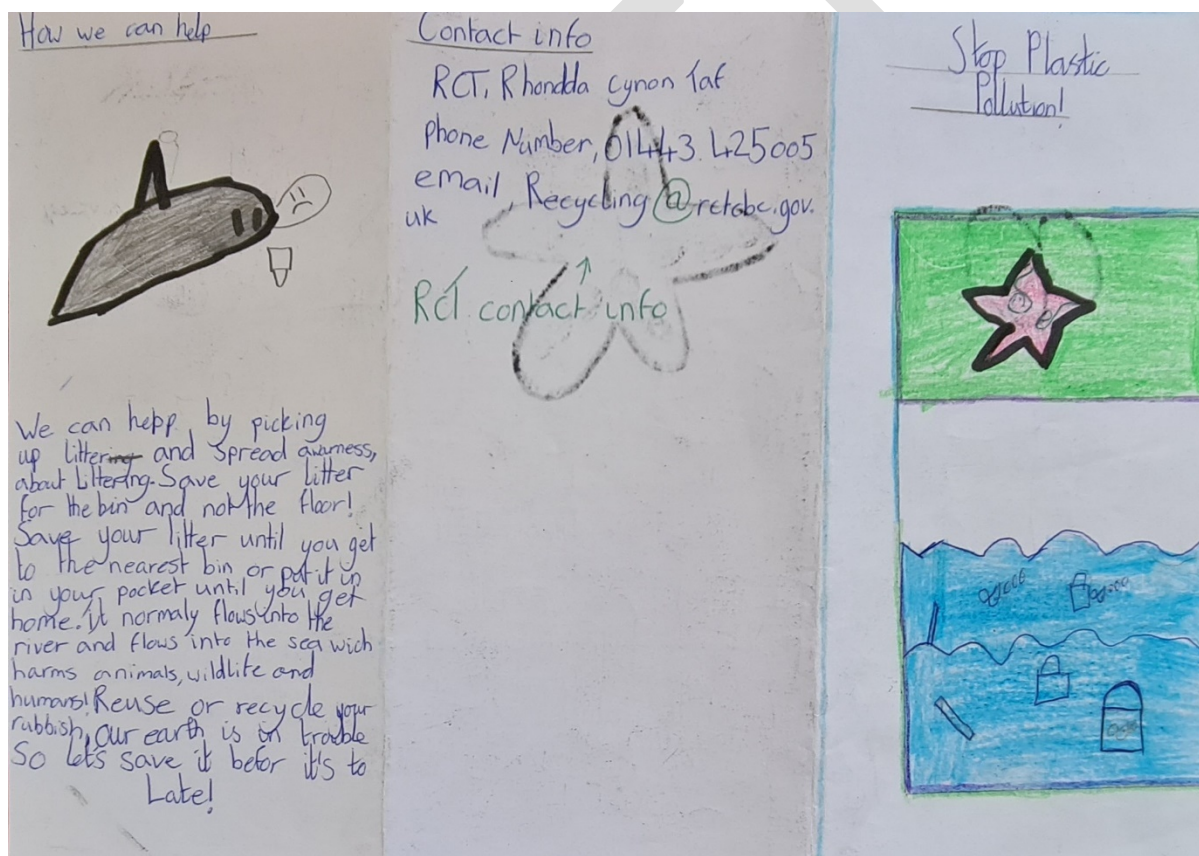 How we can help
We can hepp by picking
up littering and spread awarness,
about littering. Save your litter
for the bin and not the floor!
Save your litter until you get
to the nearest bin or put it in
in your pocket until you get
home. it normaly flows into the
river and flows into the sea wich
harms animals, wildlife and
humans! Reuse or recycle your
rubbish, our earth is in trouble
So lets save it befor it's to
Late!
Contact info
RCT, Rhondda cynon Taf
phone Number, 01443 425005
email, Recycling @rctcbc.gov.
uk
RCT contact info
Stop Plastic
Pollution!